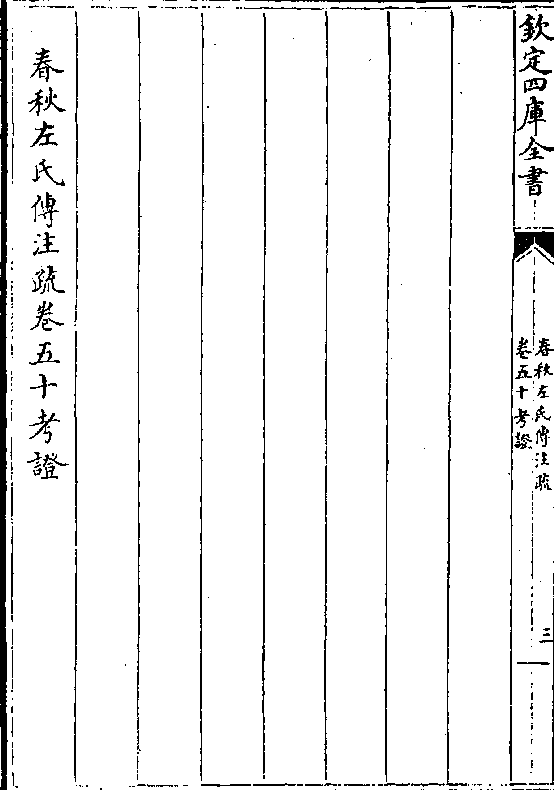 欽定四庫全書
春秋左氏傳注疏
卷五十考證
三
春秋左氏傳注疏卷五十考證